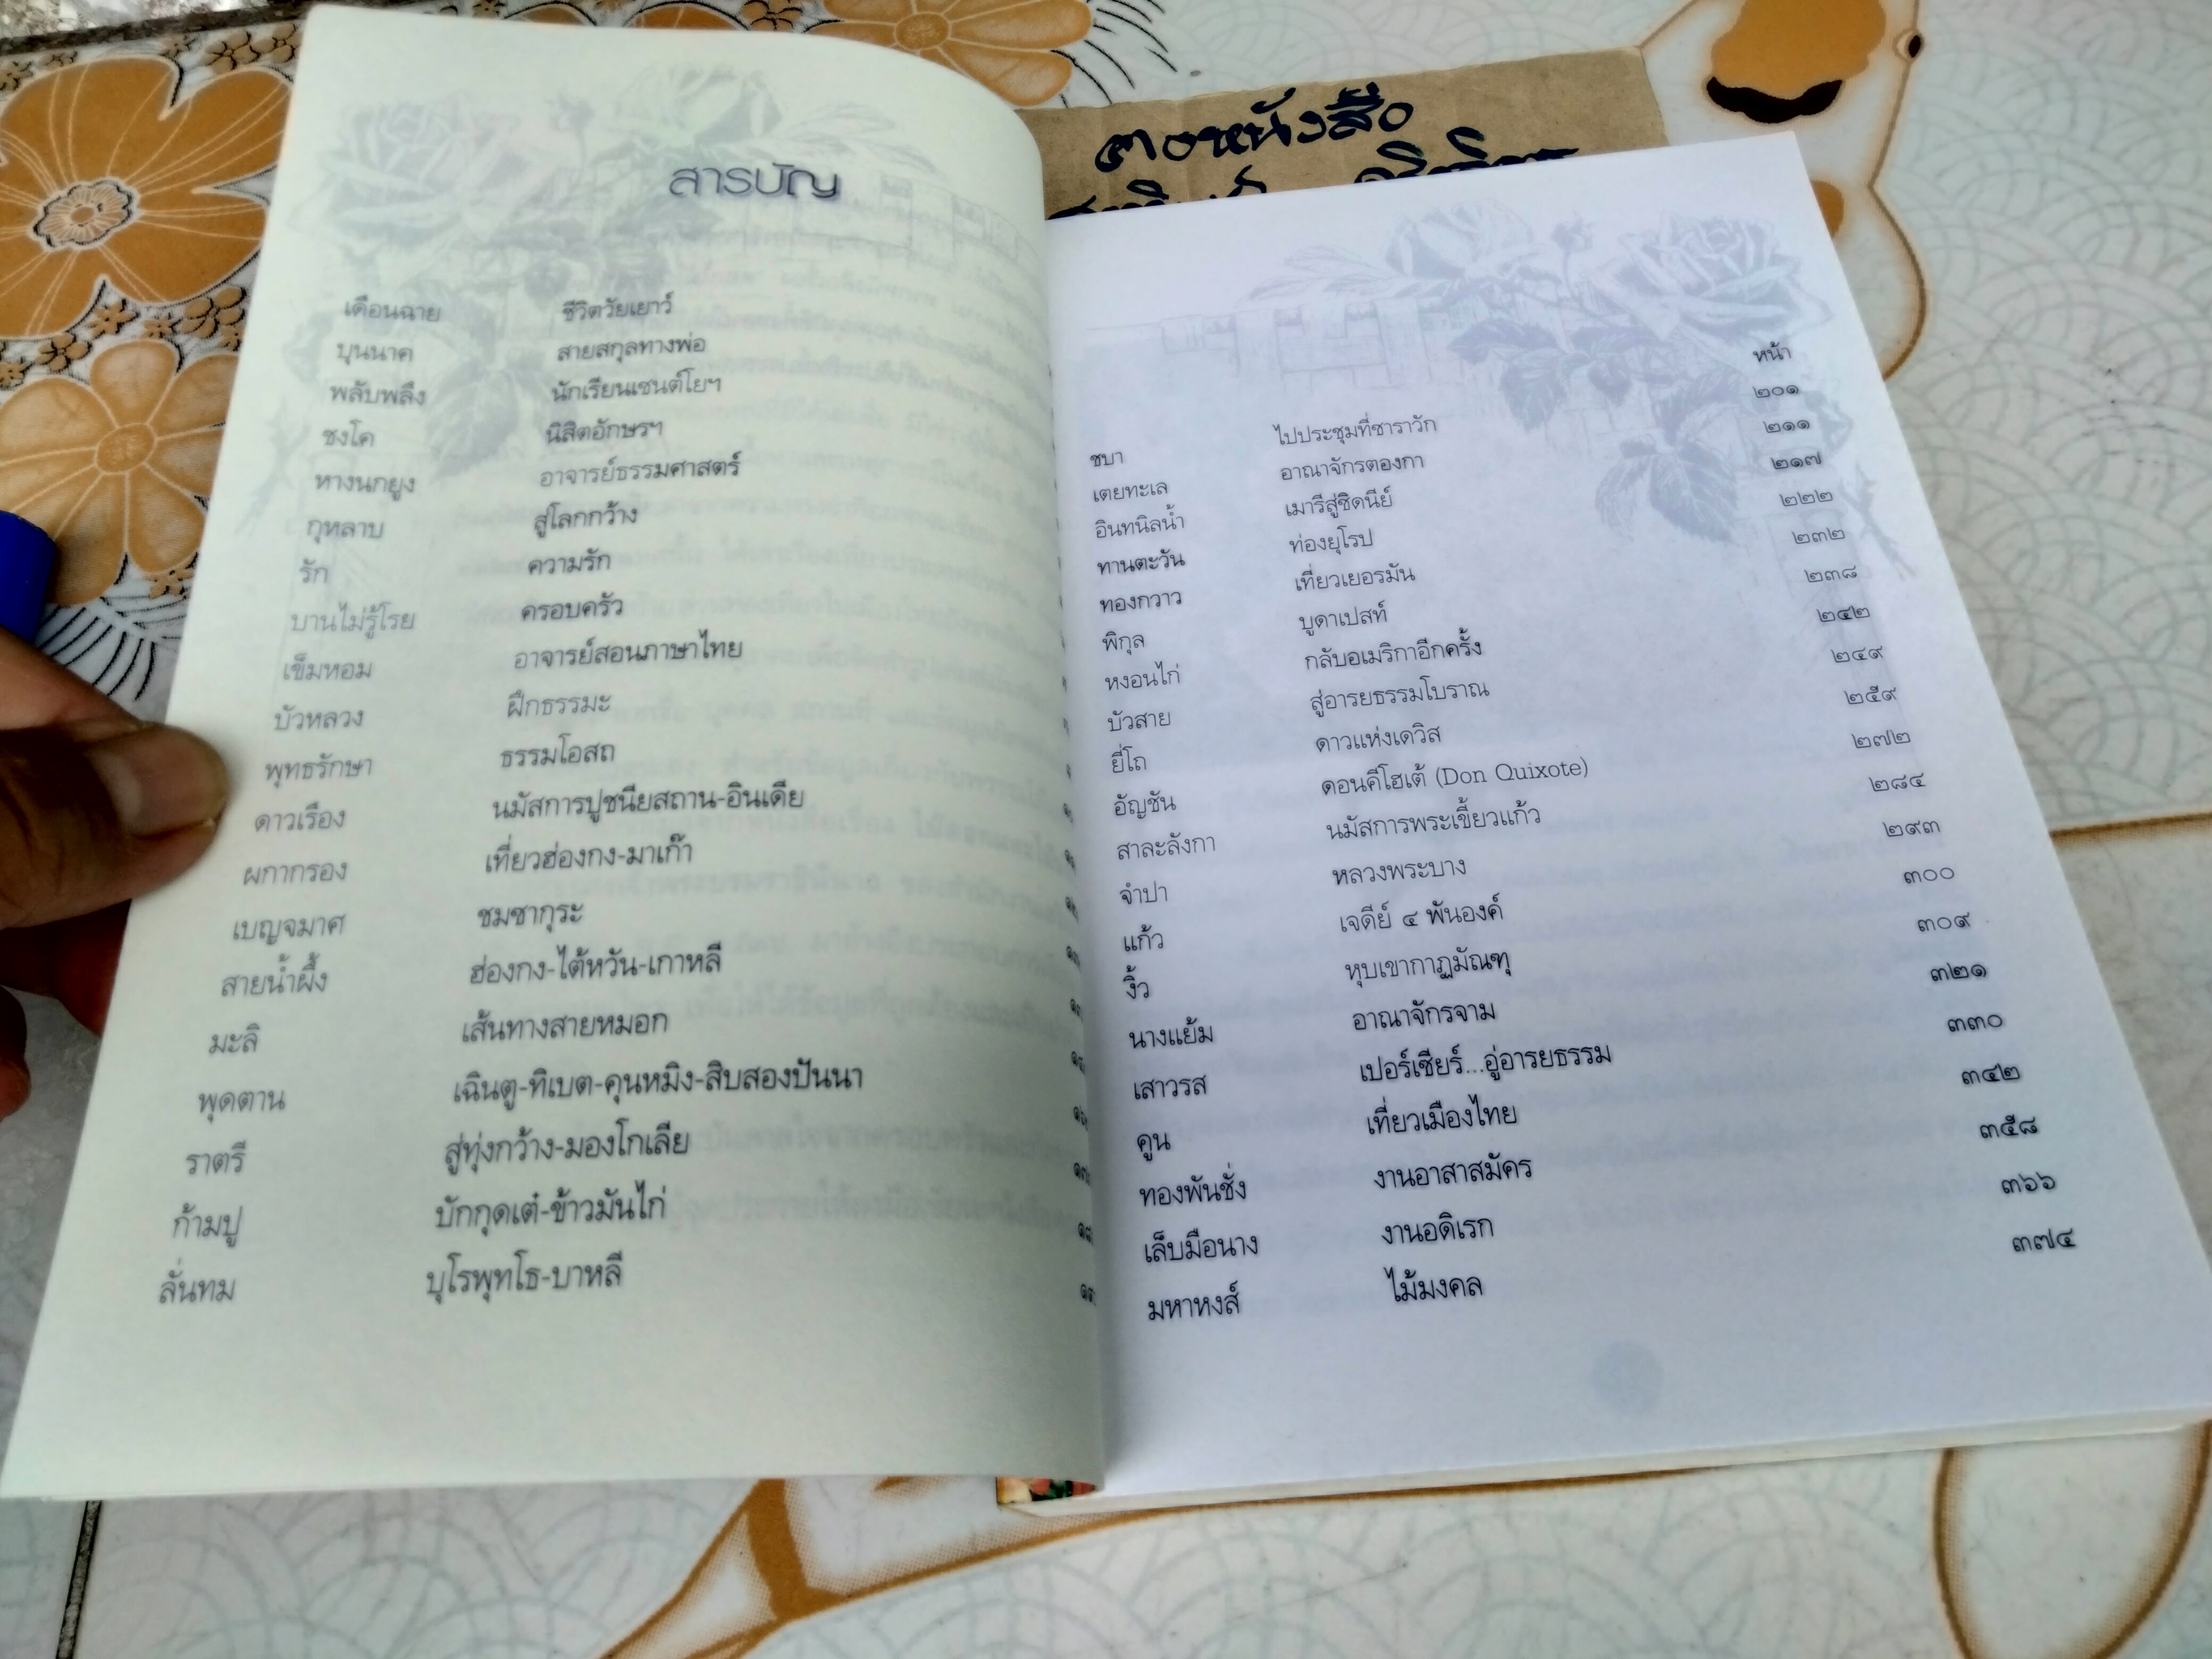 สารบัญ
เดือนฉาย ชีวิตวัยเยาว์
บุนนาค สายสกุลทางพ่อ
พลับพลึง นักเรียนเซนต์โยฯ
ชงโค นิสิตอักษรฯ
หางนกยูง อาจารย์ธรรมศาสตร์
กุหลาบ สู่โลกกว้าง
รัก ความรัก
บานไม่รู้โรย ครอบครัว
เข็มหอม อาจารย์สอนภาษาไทย
บัวหลวง ฝึกธรรมะ
พุทธรักษา ธรรมโอสถ
ดาวเรือง นมัสการปูชนียสถาน-อินเดีย
ผกากรอง เที่ยวฮ่องกง-มาเก๊า
เบญจมาศ ชมซากุระ
สายน้ำผึ้ง ฮ่องกง-ไต้หวัน-เกาหลี
มะลิ เส้นทางสายหมอก
พุดตาน เฉินตู-ทิเบต-คุนหมิง-สิบสองปันนา
ราตรี สู่ทุ่งกว้าง-มองโกเลีย
ก้ามปู บักกุดเต๋-ข้าวมันไก่
ลั่นทม บุโรพุทโธ-บาหลี
หนังสือ
หน้า
ชบา ไปประชุมที่ซาราวัก ๒๐๑
เตยทะเล อาณาจักรตองกา ๒๑๑
อินทนิลน้ำ เมารีสู่ซิดนีย์ ๒๑๗
ทานตะวัน ท่องยุโรป ๒๒๒
ทองกวาว เที่ยวเยอรมัน ๒๓๒
พิกุล บูดาเปสท์ ๒๓๘
หงอนไก่ กลับอเมริกาอีกครั้ง ๒๔๒
บัวสาย สู่อารยธรรมโบราณ ๒๔๙
ยี่โถ ดาวแห่งเดวิส ๒๕๙
อัญชัน ดอนคีโฮเต้ (Don Quixote) ๒๗๒
สาละลังกา นมัสการพระเขี้ยวแก้ว ๒๘๔
จำปา หลวงพระบาง ๒๙๓
แก้ว เจดีย์ ๔ พันองค์ ๓๐๐
งิ้ว หุบเขากาฏมัณฑุ ๓๐๙
นางแย้ม อาณาจักรจาม ๓๒๑
เสาวรส เปอร์เซียร์...อู่อารยธรรม ๓๓๐
คูน เที่ยวเมืองไทย ๓๔๒
ทองพันชั่ง งานอาสาสมัคร ๓๕๘
เล็บมือนาง งานอดิเรก ๓๖๖
มหาหงส์ ไม้มงคล ๓๗๔